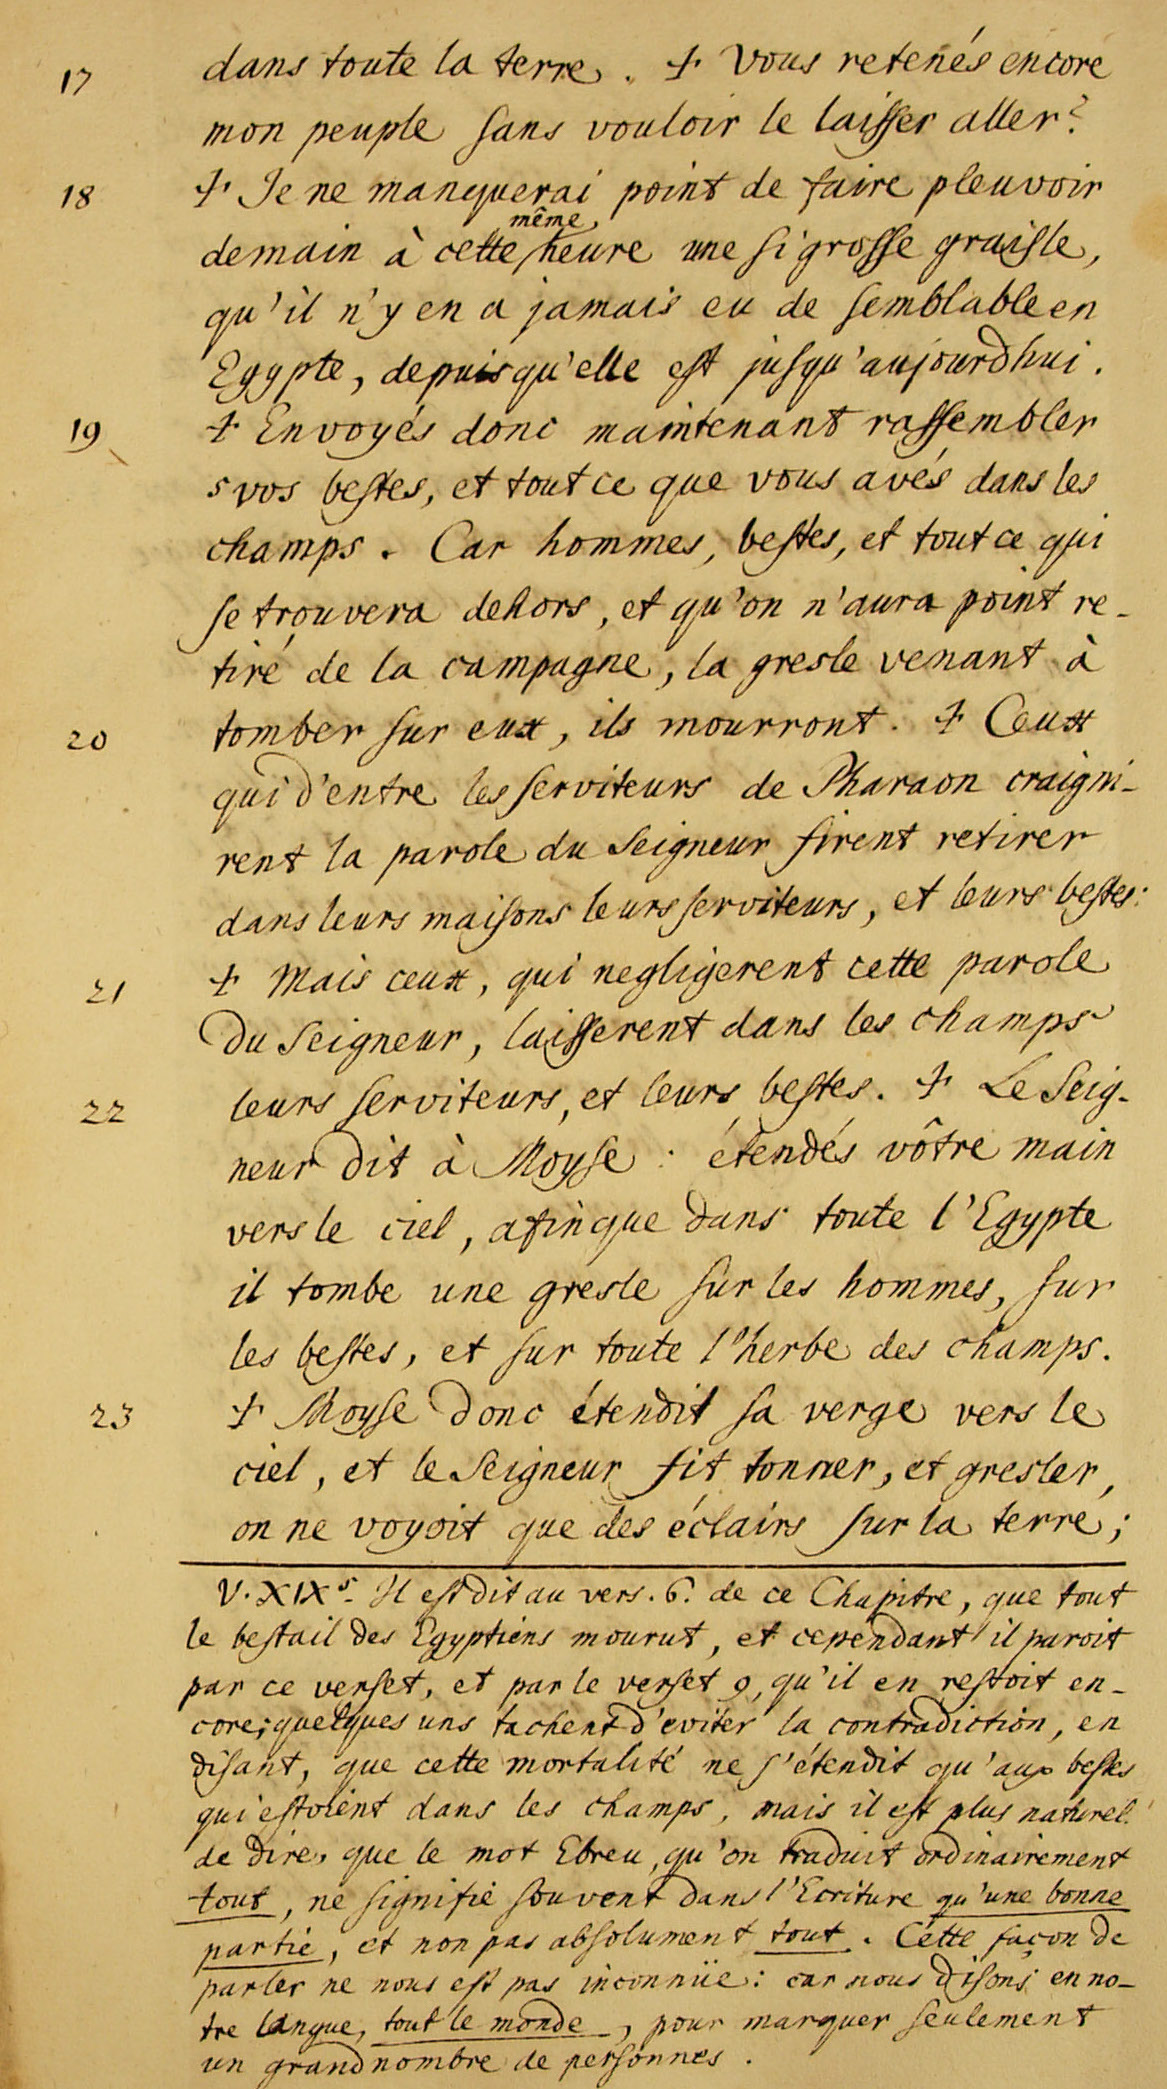 17 dans toute la terre. + Vous retenés encore
mon peuple sans vouloir le laisser aller?
18 + Je ne manquerai point de faire pleuvoir
même
demain à cette heure une si grosse graisle,
qu'il n'y en a jamais eu de semblable en
Egypte, depuis qu'elle est jusqu'aujourdhui.
19 + Envoyés donc maintenant rassembler
s vos bestes, et tout ce que vous avés dans les
champs. Car hommes, bestes, et tout ce qui
se trouvera dehors, et qu'on n'aura point re-
tiré de la campagne, la gresle venant à
20 tomber sur eux, ils mourront. + Ceux
qui d'entre les serviteurs de Pharaon craigni-
rent la parole du Seigneur firent retirer
dans leurs maisons leurs serviteurs, et leurs bestes:
21 + Mais ceux, qui negligerent cette parole
du Seigneur, laisserent dans les champs
22 leurs serviteurs, et leurs bestes. + Le Seig-
neur dit à Moyse : étendés vôtre main
vers le ciel, afinque dans toute l'Egypte
il tombe une gresle sur les hommes, sur
les bestes, et sur toute l'herbe des champs.
23 + Moyse donc étendit sa verge vers le
ciel, et le Seigneur fit tonner, et gresler,
on ne voyoit que des éclairs sur la terre;
V. XIX s. Il est dit au vers. 6. de ce Chapitre, que tout
le bestail des Egyptiens mourut, et cependant il paroit
par ce verset, et par le verset 9, qu'il en restoit en-
core; quelques uns tachent d'eviter la contradiction, en
disant, que cette mortalité ne s'étendit qu'aux bestes
qui estoient dans les champs, mais il est plus naturel
de dire, que le mot Ebreu, qu'on traduit ordinairement
tout, ne signifie souvent dans l'Ecriture qu'une bonne
partie, et non pas absolument tout. Cette façon de
parler ne nous est pas inconnüe: car nous disons en no-
tre langue, tout le monde, pour marquer seulement
un grand nombre de personnes.